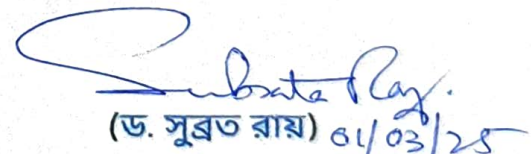 Subrata Ray.
(ড. সুব্রত রায়) 01/03/25